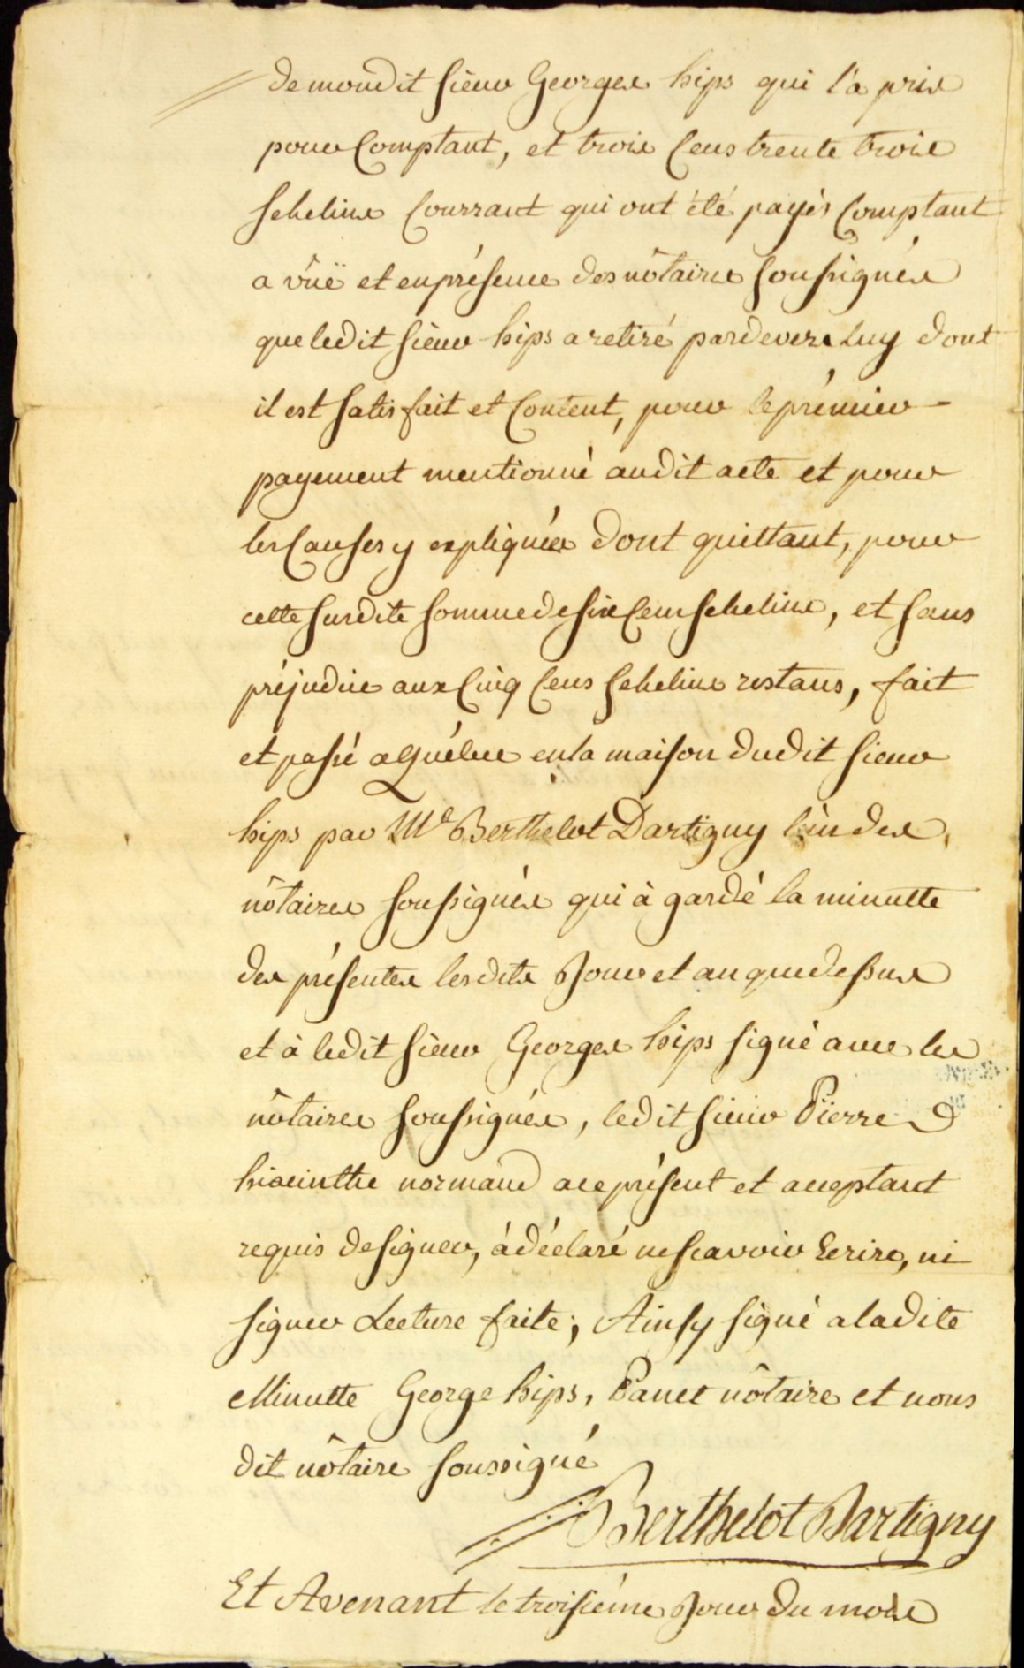 de mondit sieur Georges hips qui l'a pris
pour Comptant, et trois Cens trente trois
schelins Courrant qui ont été payés Comptant
a vûë et en présence des nôtaires soussignés
que ledit sieur hips a retiré pardevers Luy dont
il est satisfait et Content, pour le prémier
payement mentionné audit acte et pour
les Causes y expliquées dont quittant, pour
cette susdite somme de six Cens schelins, et sans
préjudice aux Cinq Cens schelins restans, fait
et passé a Québec en la maison dudit sieur
hips par Me Berthelot Dartigny l'un des
nôtaires soussignés qui à gardé la minutte
des présentes lesdits Jour et an que dessus
et à ledit sieur Georges hips signé avec les
nôtaires soussignés, ledit sieur Pierre
hiacinthe normand a ce présent et acceptant
requis de signer, à déclaré ne scavoir Ecrire, ni
signer Lecture faite; Ainsy signé a ladite
Minutte George hips, Panet nôtaire et nous
dit nôtaire soussigné
Berthelot Dartigny
Et Avenant le troisiéme Jour du mois